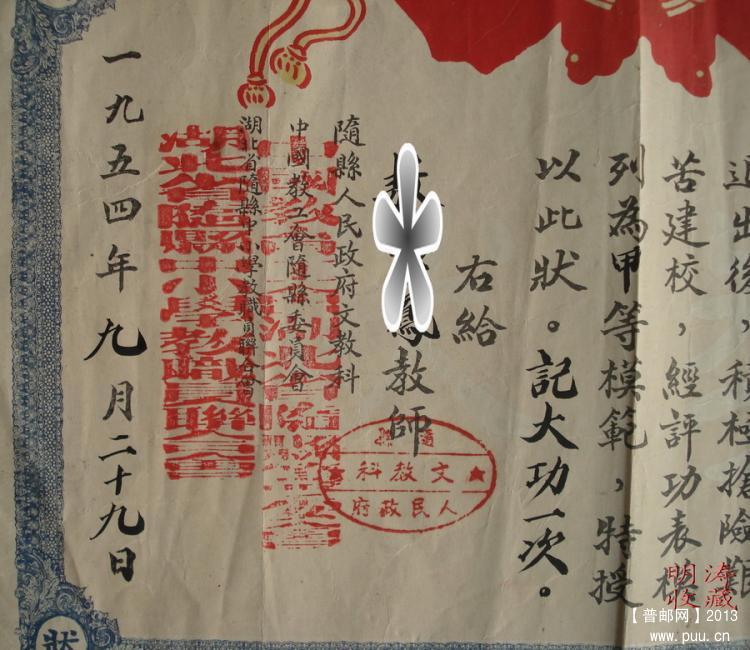 迫出後，積極搶險艱
苦建校，經評功表模
列為甲等模範，特授
以此狀。記大功一次。
右給
鳳教師
隨縣人民政府文教科
中國教工會隨縣委員會
湖北省隨縣中小學教職員聯合會
一九五四年九月二十九日
湖北省隨縣中小學教職員聯合會
隨縣
文教科
人民政府
狀
明濤
收藏
【普邮网】2013
www.puu.cn